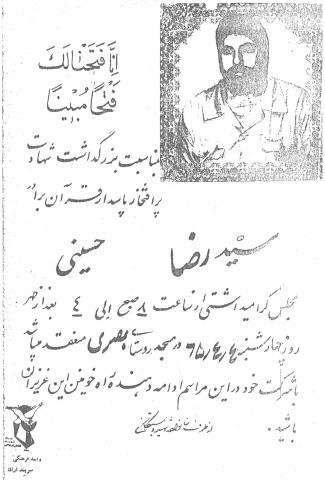 انا فتحنا لک
فتحاً مبیناً
بمناسبت بزرگداشت شهادت
پر افتخار پاسدار قرآن برادر
سید رضا حسینی
مجلس گرامیداشتی از ساعت ۸ صبح الی ٤ بعد از ظهر
روز چهارشنبه در مسجد روستای مصری منعقد میباشد
با شرکت خود در این مراسم ادامه دهنده راه خونین این عزیزان
باشید.
از طرف
واحد فرهنگی
سربند اراک